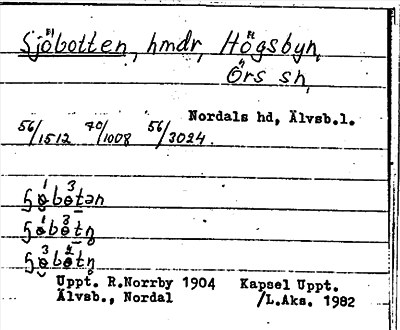 Sjöbotten, hmdr, Högsbyn,
Örs sn,
Nordals hd, Älvsb.l.
56/1512 70/1008 56/3024.
Uppt. R.Norrby 1904 Kapsel Uppt.
Älvsb., Nordal /L.Aks. 1982